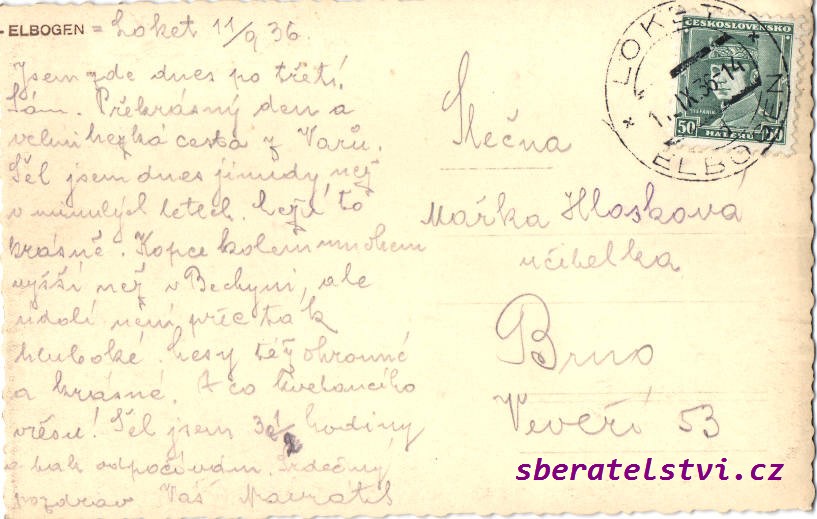 - ELBOGEN = Loket 11/9 36.
Jsem zde dnes po třetí.
Sám. Překrásný den a
velmi hezká cesta z Varů.
Šel jsem dnes jinudy, než
v minulých letech. Leží to
krásně. Kopce kolem mnohem
vyšší než v Bechyni, ale
údolí není příc tak
hluboké. Lesy též ohromné
a krásné. A co kvetoucího
vřesu! Šel jsem 3 1/2 hodiny
a pak odpočívám. Srdečný
pozdrav Váš Navrátil
Slečna
Mařka Hloskova
učitelka
Brno
Veveří 53
LOKET
ELBOGEN
IX 36-14
ČESKOSLOVENSKO
ŠTEFÁNIK
50 HALÉŘŮ 50
sberatelstvi.cz